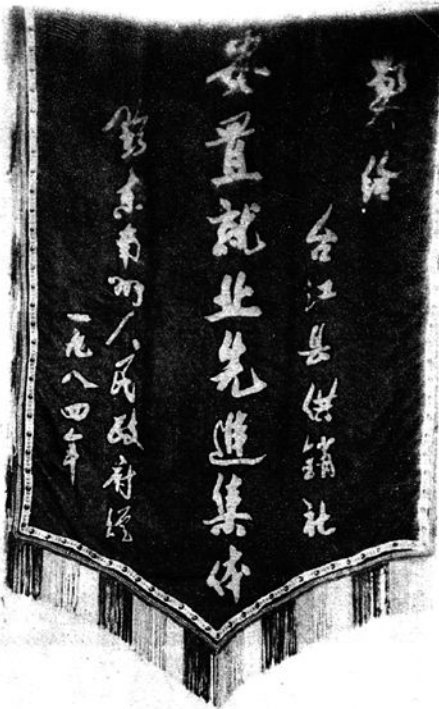 奖给
台江县供销社
安置就业先進集体
黔东南州人民政府
一九八四年